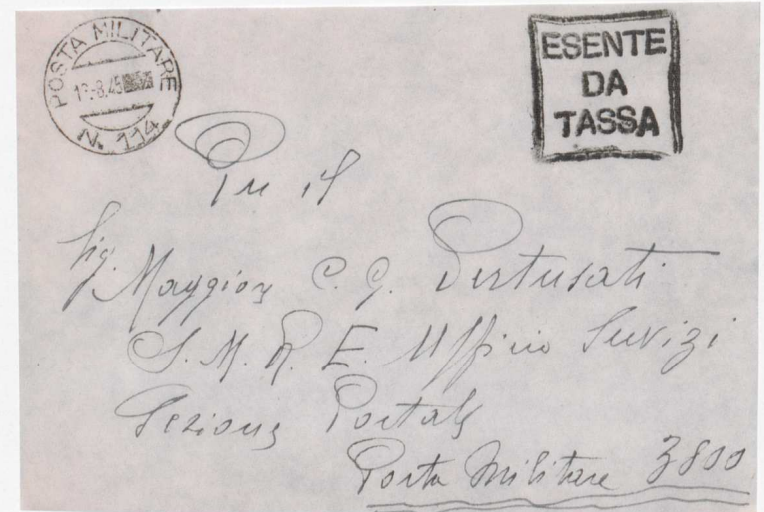 POSTA MILITARE
-8.45
N. 114
ESENTE
DA
TASSA
Per il
Sig. Maggiore C. G. Pertusati
S. M. R. E. Ufficio Servizi
Sezione Postale
Posta Militare 3800